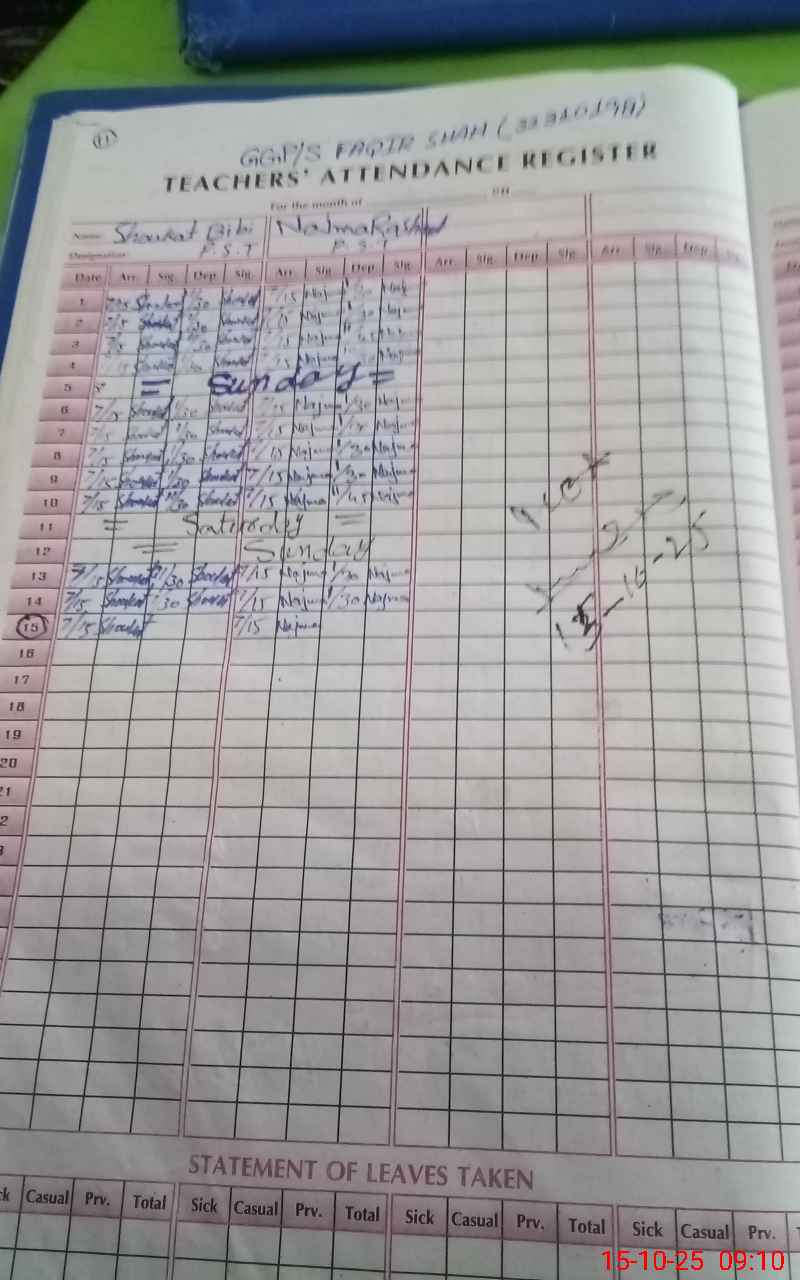 11
GGP/S FAQIR SHAH (33310198)
TEACHERS' ATTENDANCE REGISTER
For the month of
Name Shoukat Bibi Najma Rashid
Designation P.S.T P.S.T
Date Arr. Sig. Dep. Sig. Arr. Sig. Dep. Sig. Arr. Sig. Dep. Sig. Arr. Sig. Dep. Sig.
1 7/15 Shoukat 1/30 Shoukat 7/15 Naj 1/30 Naj
2 7/15 Shoukat 1/30 Shoukat 7/15 Naj 1/30 Naj
3 7/15 Shoukat Shoukat
4 7/15 Shoukat Shoukat
5 = Sunday =
6 7/15 Shoukat 1/30 Shoukat 7/15 Najma 1/30 Najma
7 7/15 Shoukat 1/30 Shoukat 7/15 Najma 1/30 Najma
8 7/15 Shoukat 1/30 Shoukat 7/15 Najma 1/30 Najma
9 7/15 Shoukat 1/30 Shoukat 7/15 Najma 1/30 Najma
10 7/15 Shoukat 11/30 Shoukat 7/15 Najma 11/45 Najma
11 = Saturday =
12 = Sunday
13 7/15 Shoukat 1/30 Shoukat 7/15 Najma 1/30 Najma
14 7/15 Shoukat 1/30 Shoukat 7/15 Najma 1/30 Najma
15 7/15 Shoukat 7/15 Najma
15-10-25
16
17
18
19
20
21
STATEMENT OF LEAVES TAKEN
Casual Prv. Total Sick Casual Prv. Total Sick Casual Prv. Total Sick Casual Prv.
15-10-25 09:10